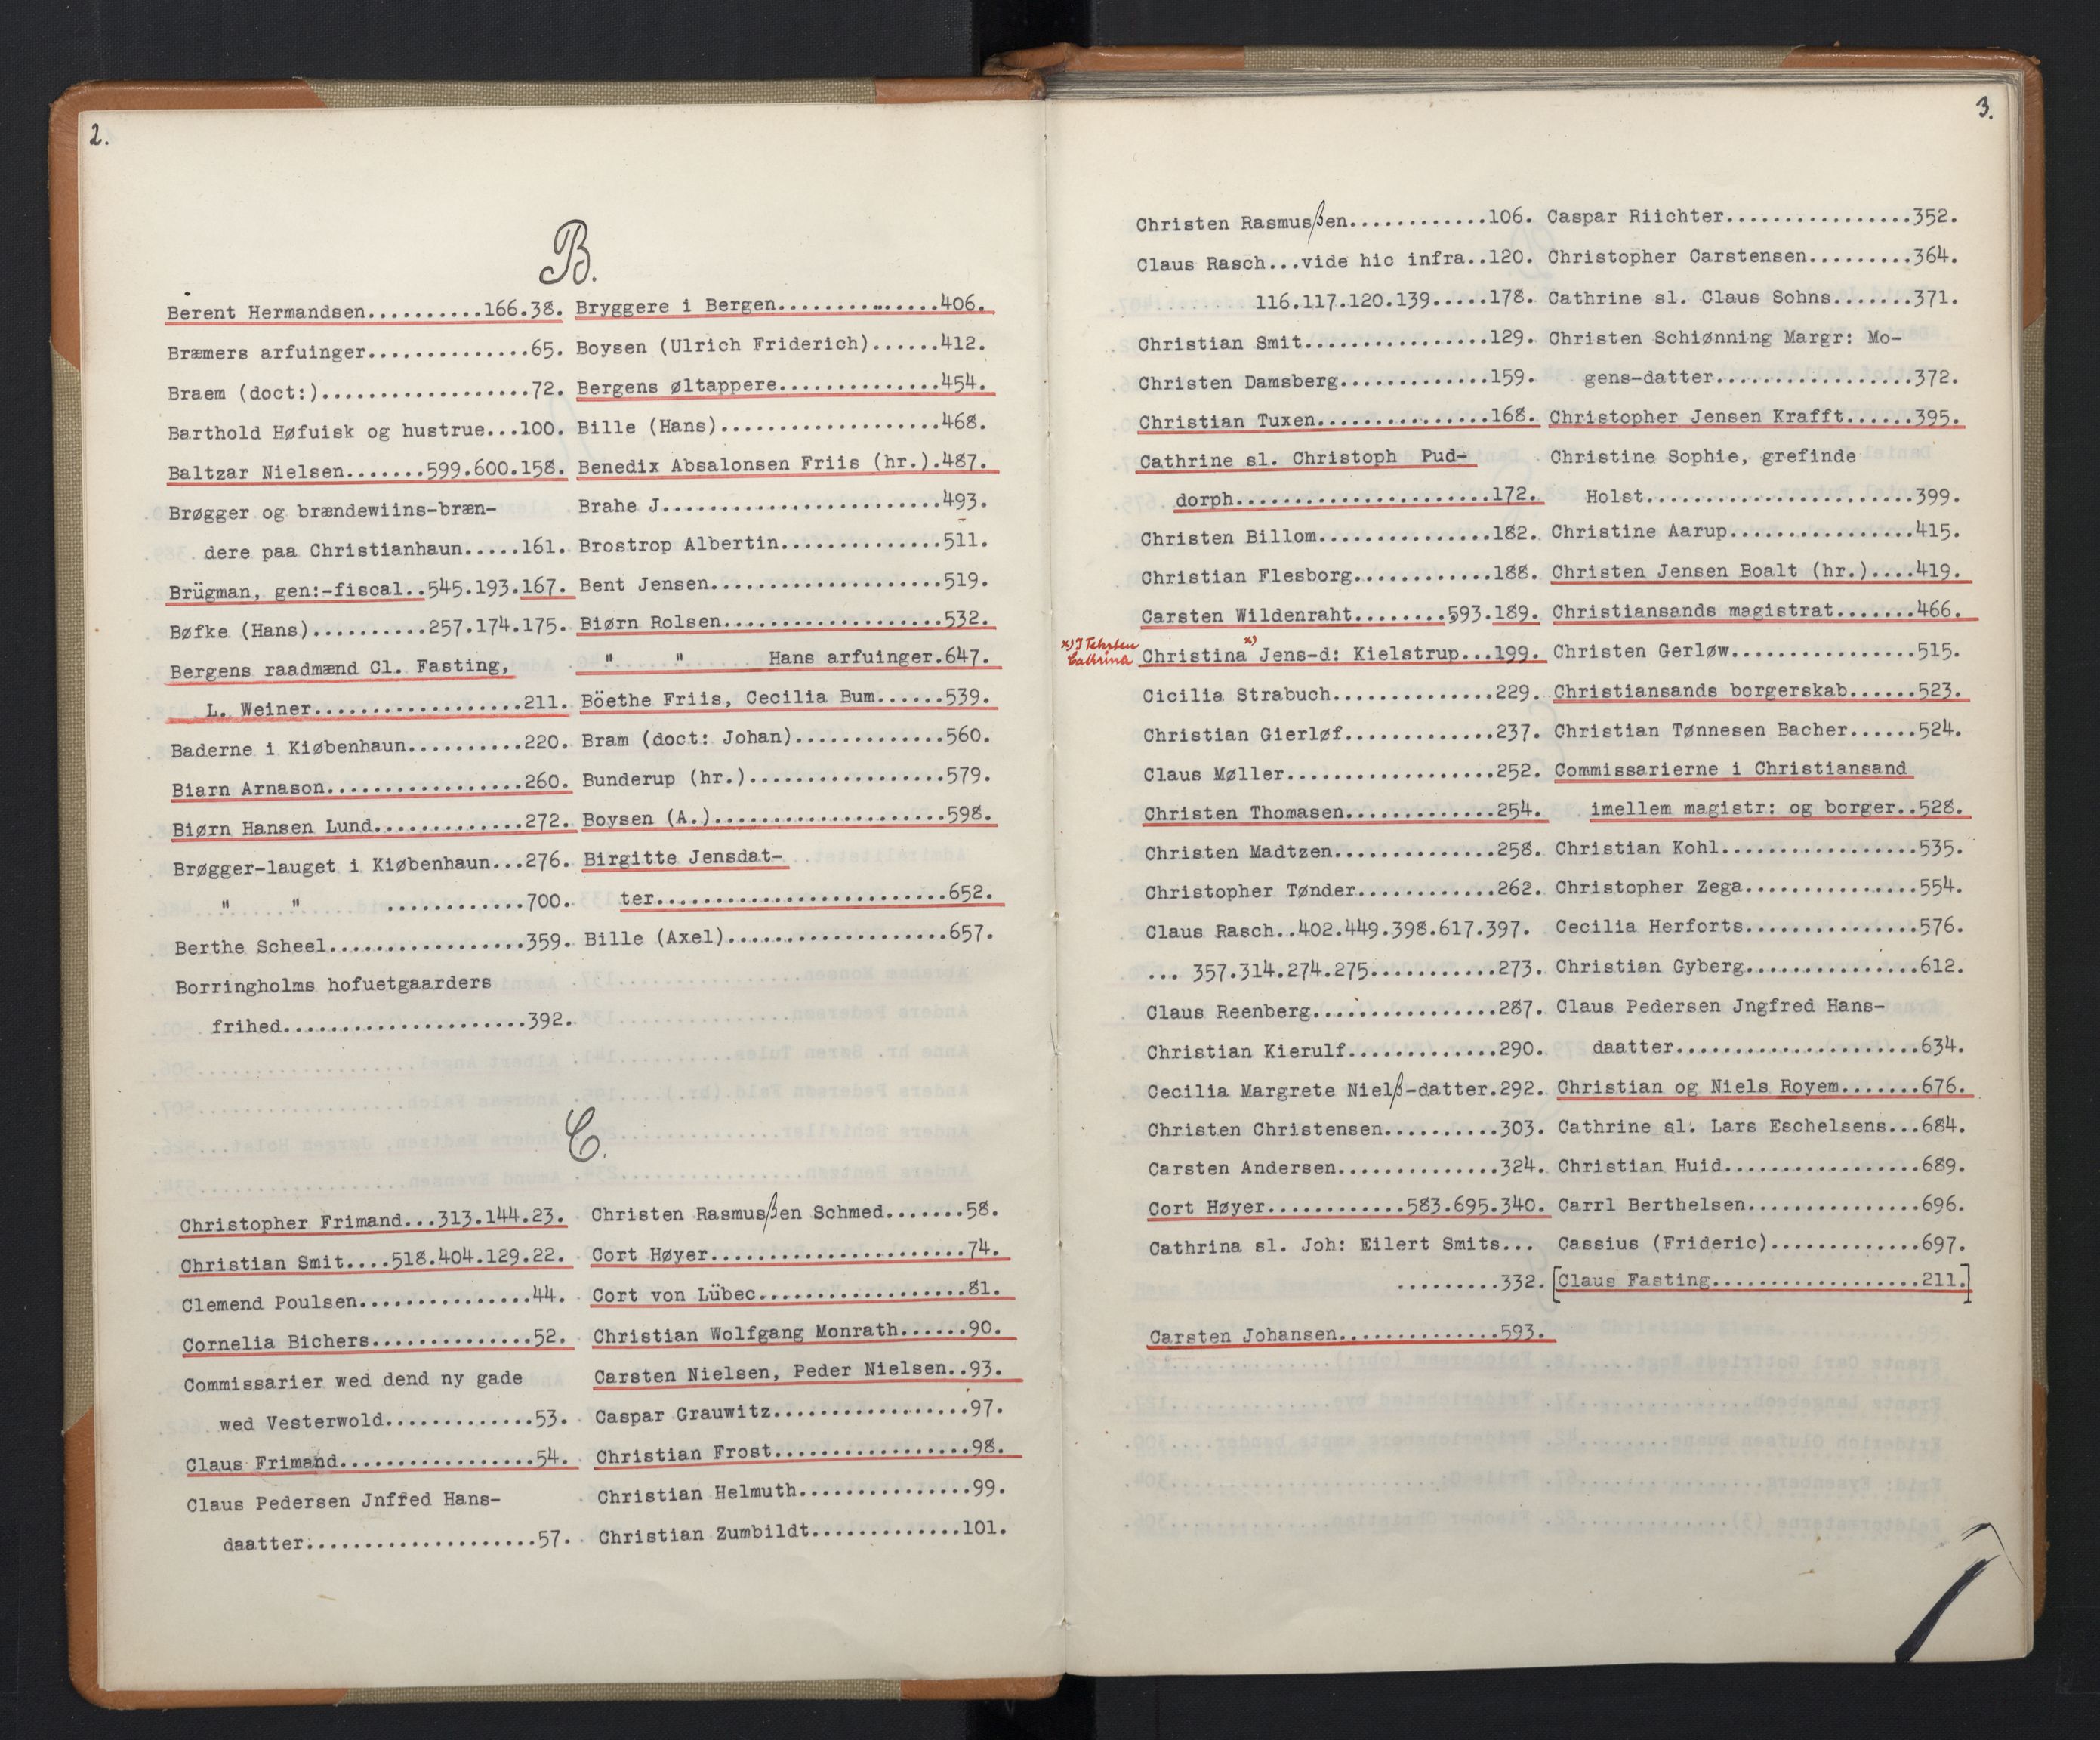 2.
B.
Berent Hermandsen..........166.38.
Bræmers arfuinger..............65.
Braem (doct:)..................72.
Barthold Høfuisk og hustrue...100.
Baltzar Nielsen.......599.600.158.
Brøgger og brændewiins-bræn-
dere paa Christianhaun.....161.
Brügman, gen:-fiscal..545.193.167.
Bøfke (Hans)..........257.174.175.
Bergens raadmænd Cl. Fasting,
L. Weiner..................211.
Baderne i Kiøbenhaun..........220.
Biarn Arnason.................260.
Biørn Hansen Lund.............272.
Brøgger-lauget i Kiøbenhaun...276.
" " ............700.
Berthe Scheel.................359.
Borringholms hofuetgaarders
frihed.....................392.
Bryggere i Bergen..............406.
Boysen (Ulrich Friderich)......412.
Bergens øltappere..............454.
Bille (Hans)...................468.
Benedix Absalonsen Friis (hr.).487.
Brahe J........................493.
Brostrop Albertin..............511.
Bent Jensen....................519.
Biørn Rolsen...................532.
" " Hans arfuinger.647.
Böethe Friis, Cecilia Bum......539.
Bram (doct: Johan).............560.
Bunderup (hr.).................579.
Boysen (A.)....................598.
Birgitte Jensdat-
ter.........................652.
Bille (Axel)...................657.
C.
Christopher Frimand...313.144.23.
Christian Smit....518.404.129.22.
Clemend Poulsen...............44.
Cornelia Bichers..............52.
Commissarier wed dend ny gade
wed Vesterwold.............53.
Claus Frimand.................54.
Claus Pedersen Jnfred Hans-
daatter....................57.
Christen Rasmusßen Schmed.......58.
Cort Høyer......................74.
Cort von Lübec..................81.
Christian Wolfgang Monrath......90.
Carsten Nielsen, Peder Nielsen..93.
Caspar Grauwitz.................97.
Christian Frost.................98.
Christian Helmuth...............99.
Christian Zumbildt.............101.
3.
Christen Rasmusßen............106.
Claus Rasch...vide hic infra..120.
116.117.120.139.....178.
Christian Smit................129.
Christen Damsberg.............159.
Christian Tuxen...............168.
Cathrine sl. Christoph Pud-
dorph......................172.
Christen Billom...............182.
Christian Flesborg............188.
Carsten Wildenraht........593.189.
*) I Teksten
Cathrina
Christina*) Jens-d: Kielstrup...199.
Cicilia Strabuch..............229.
Christian Gierløf.............237.
Claus Møller..................252.
Christen Thomasen.............254.
Christen Madtzen..............258.
Christopher Tønder............262.
Claus Rasch..402.449.398.617.397.
... 357.314.274.275...........273.
Claus Reenberg................287.
Christian Kierulf.............290.
Cecilia Margrete Nielß-datter.292.
Christen Christensen..........303.
Carsten Andersen..............324.
Cort Høyer............583.695.340.
Cathrina sl. Joh: Eilert Smits...
.........332.
Carsten Johansen..............593.
Caspar Riichter................352.
Christopher Carstensen.........364.
Cathrine sl. Claus Sohns.......371.
Christen Schiønning Margr: Mo-
gens-datter.................372.
Christopher Jensen Krafft......395.
Christine Sophie, grefinde
Holst.......................399.
Christine Aarup................415.
Christen Jensen Boalt (hr.)....419.
Christiansands magistrat.......466.
Christen Gerløw................515.
Christiansands borgerskab......523.
Christian Tønnesen Bacher......524.
Commissarierne i Christiansand
imellem magistr: og borger..528.
Christian Kohl.................535.
Christopher Zega...............554.
Cecilia Herforts...............576.
Christian Gyberg...............612.
Claus Pedersen Jngfred Hans-
daatter.....................634.
Christian og Niels Royem.......676.
Cathrine sl. Lars Eschelsens...684.
Christian Huid.................689.
Carrl Berthelsen...............696.
Cassius (Frideric).............697.
[Claus Fasting..................211.]